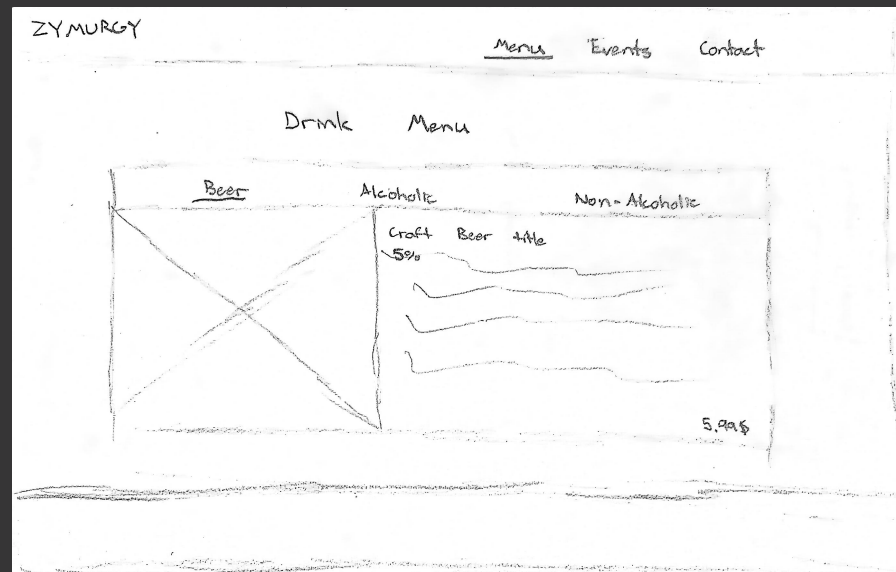 ZYMURGY
Menu Events Contact
Drink Menu
Beer Alcoholic Non-Alcoholic
Craft Beer title
5%
5.99$